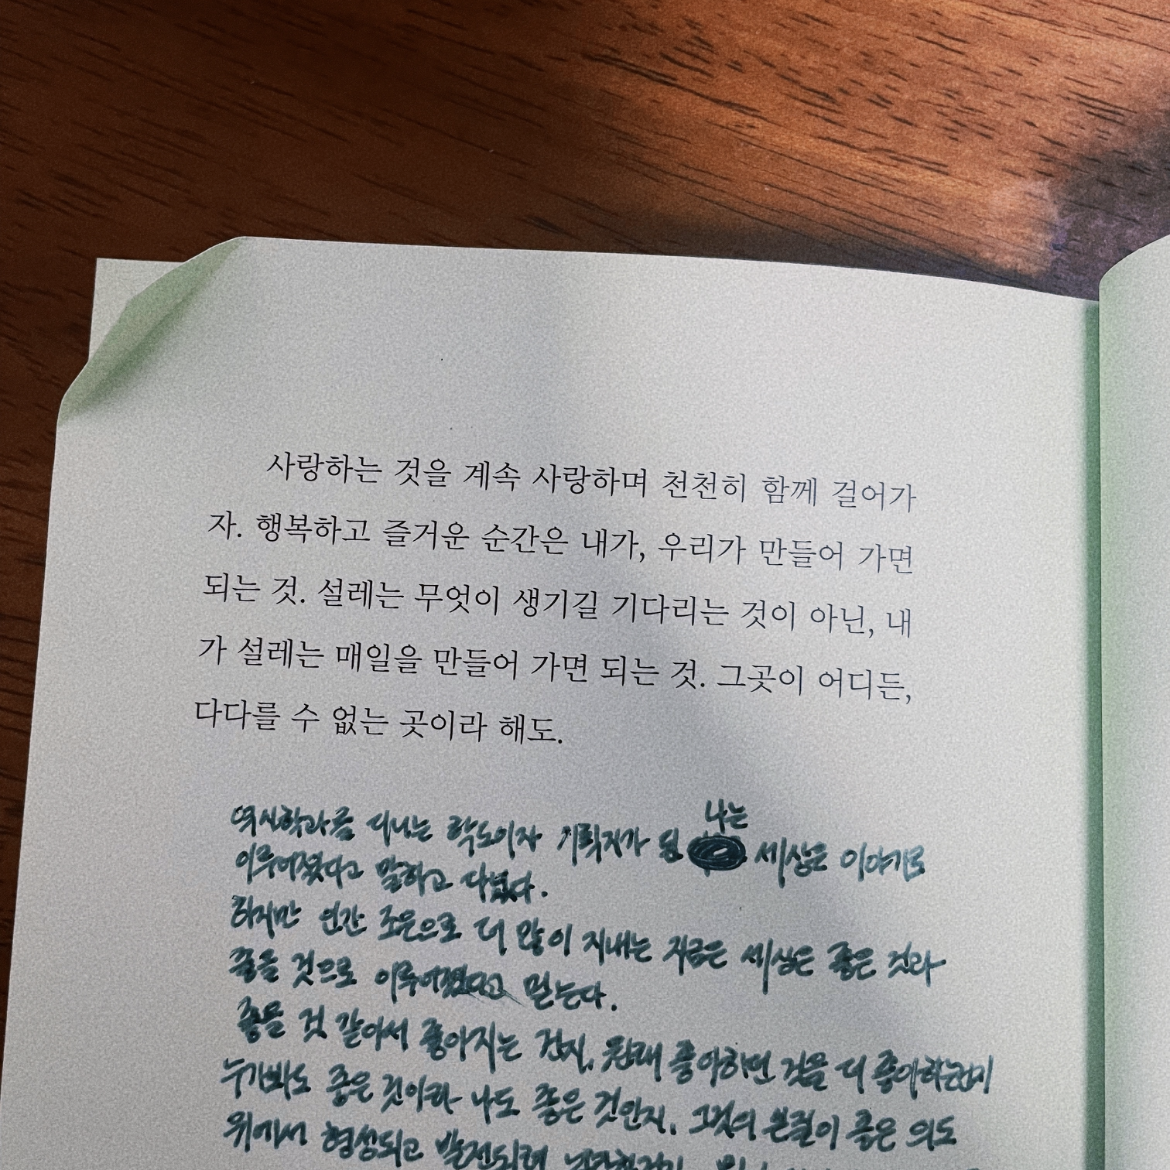 사랑하는 것을 계속 사랑하며 천천히 함께 걸어가
자. 행복하고 즐거운 순간은 내가, 우리가 만들어 가면
되는 것. 설레는 무엇이 생기길 기다리는 것이 아닌, 내
가 설레는 매일을 만들어 가면 되는 것. 그곳이 어디든,
다다를 수 없는 곳이라 해도.
나는
다니는 기획자가 된 세상은 이야기로
이루어졌다고 말하고 다녔다.
하지만 인간 조은으로 더 많이 지내는 지금은 세상은 좋은 것과
좋을 것으로 이루어졌다고 믿는다.
좋을 것 같아서 좋아지는 건지, 원래 좋아하던 것을 더 좋아하는건지
누가봐도 좋은 것이라 나도 좋은 것인지. 그것의 본질이 좋은 의도
위에서 형성되고 발전되려